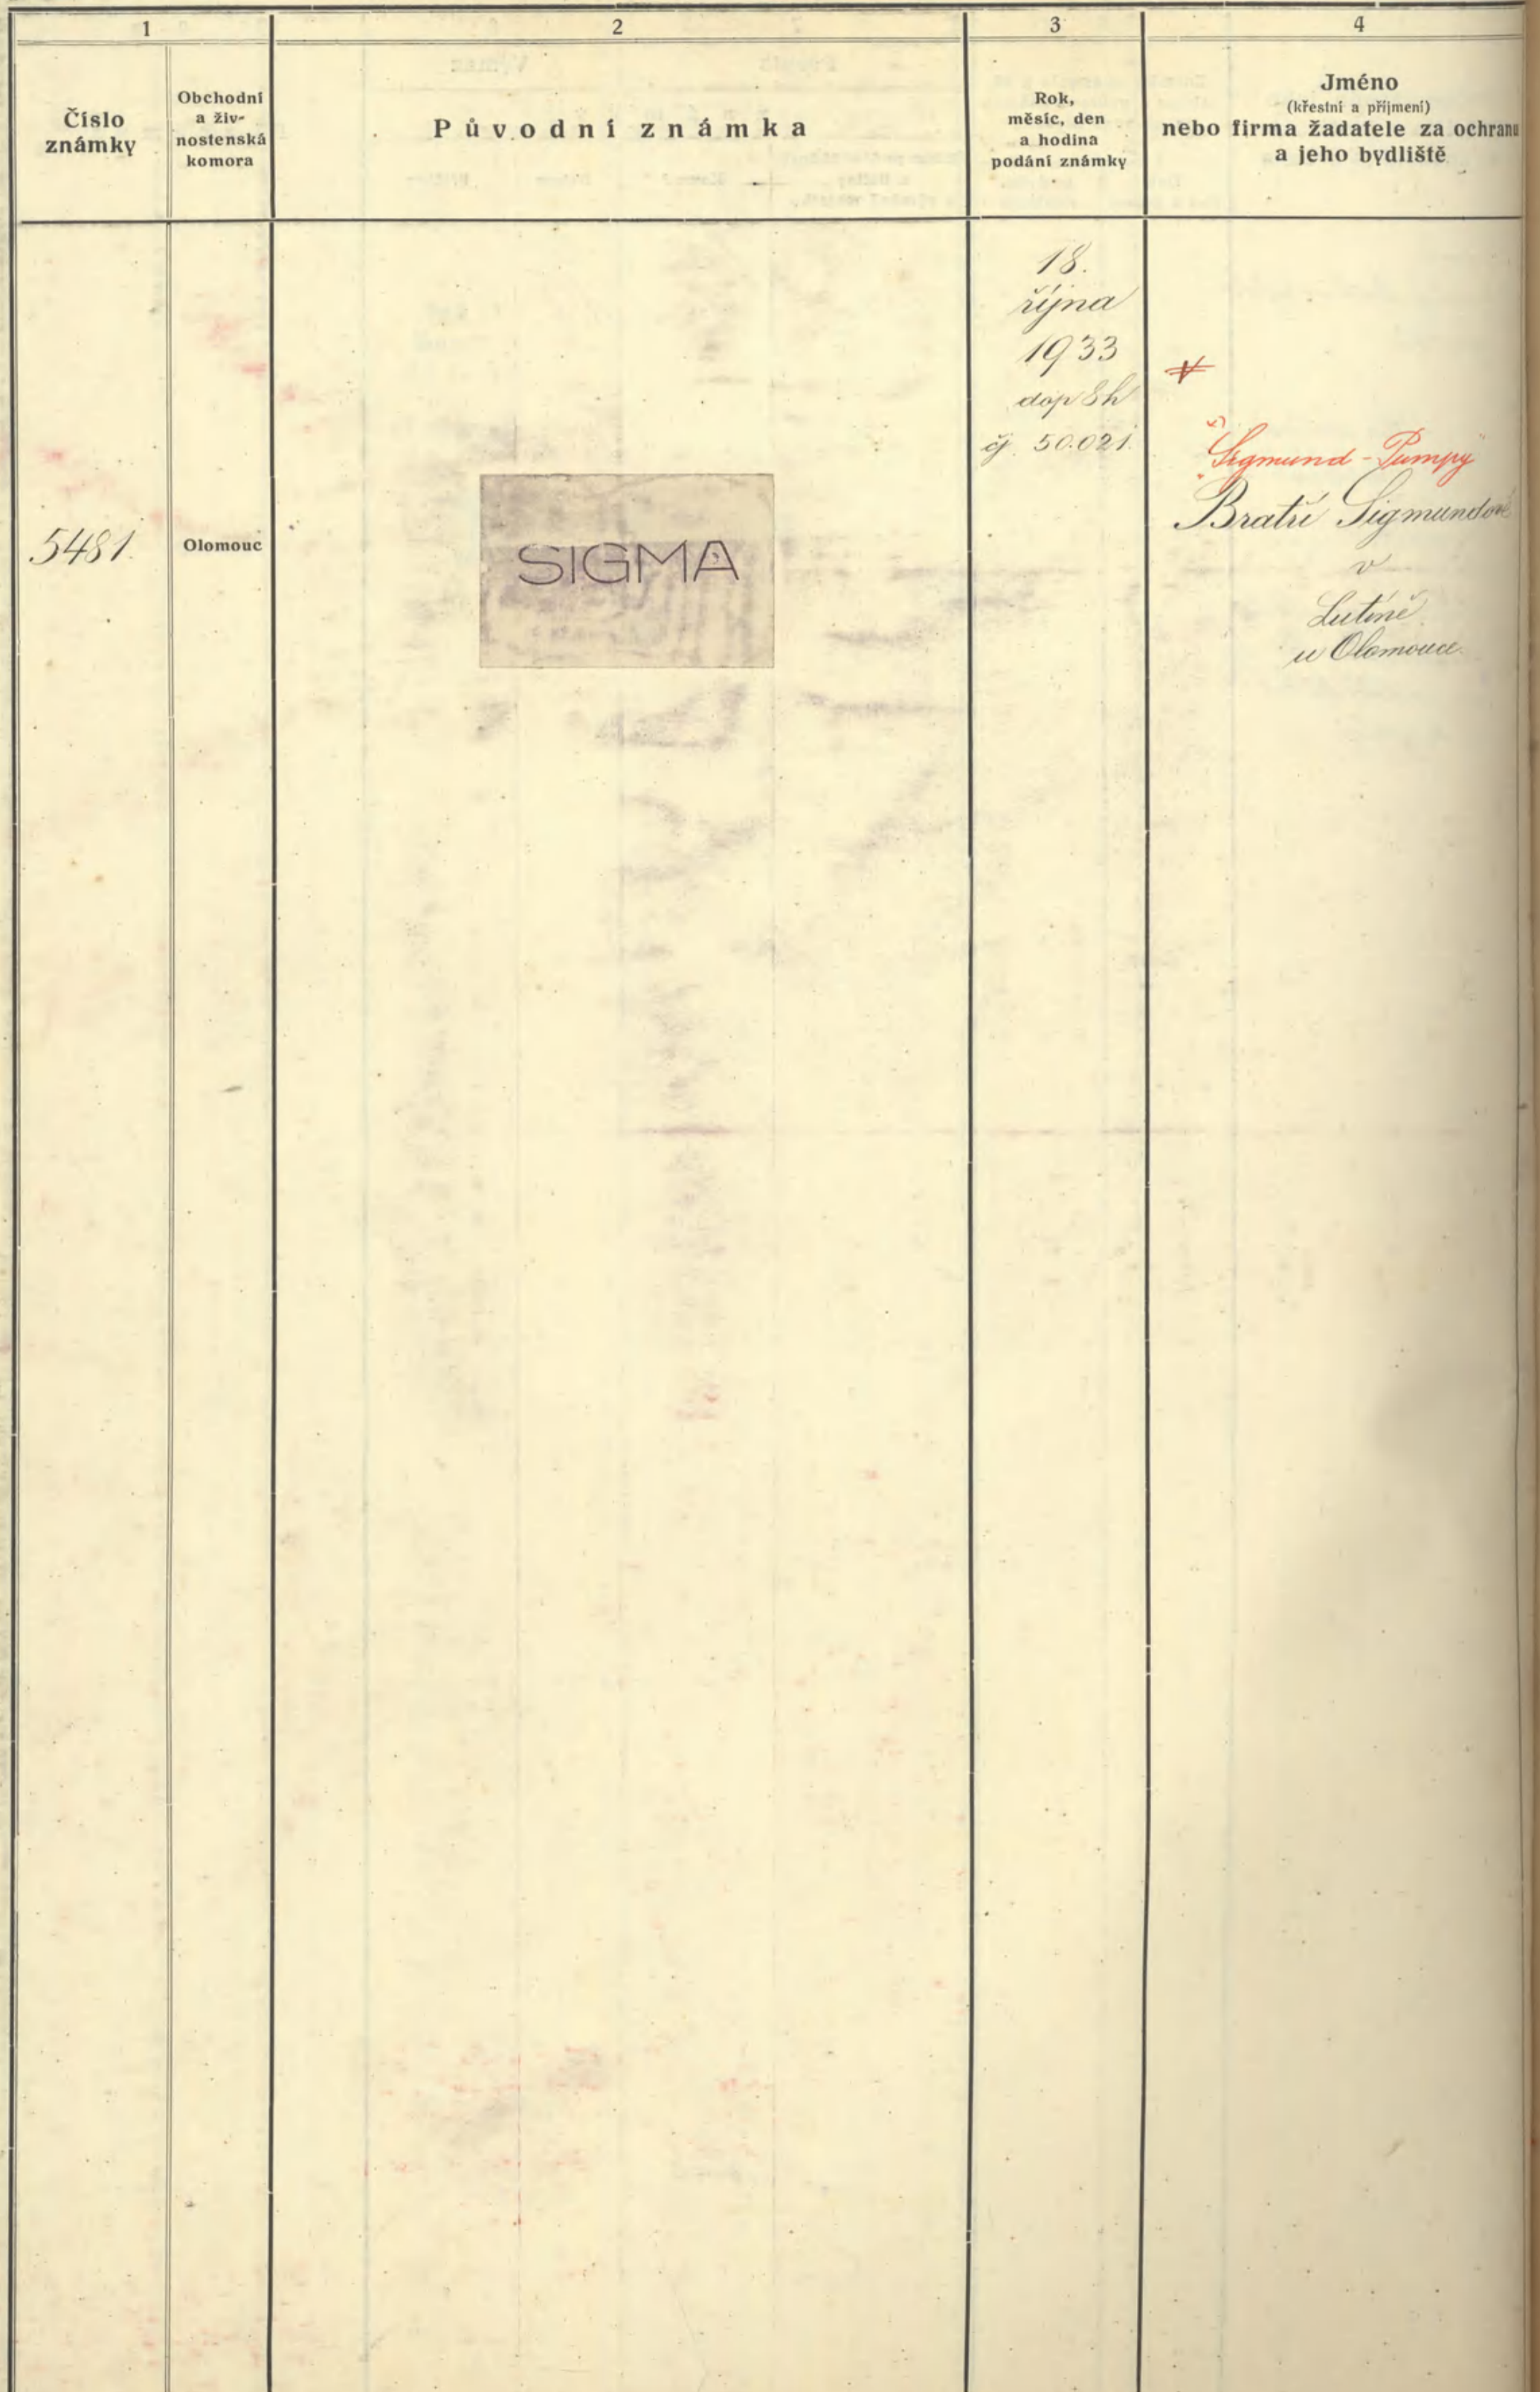 1
2
3
4
Číslo
známky
Obchodní
a živ-
nostenská
komora
Původní známka
Rok,
měsíc, den
a hodina
podání známky
Jméno
(křestní a příjmení)
nebo firma žadatele za ochranu
a jeho bydliště
18.
října
1933
dop 8h
čj. 50.021.
"Sigmund - Pumpy"
Bratři Sigmundové
v
Lutíně
u Olomouce.
5481.
Olomouc
SIGMA